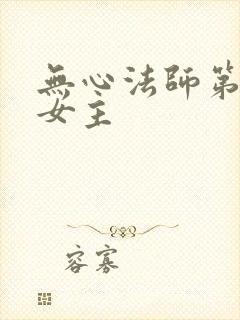 無心法師第
女主
容寡